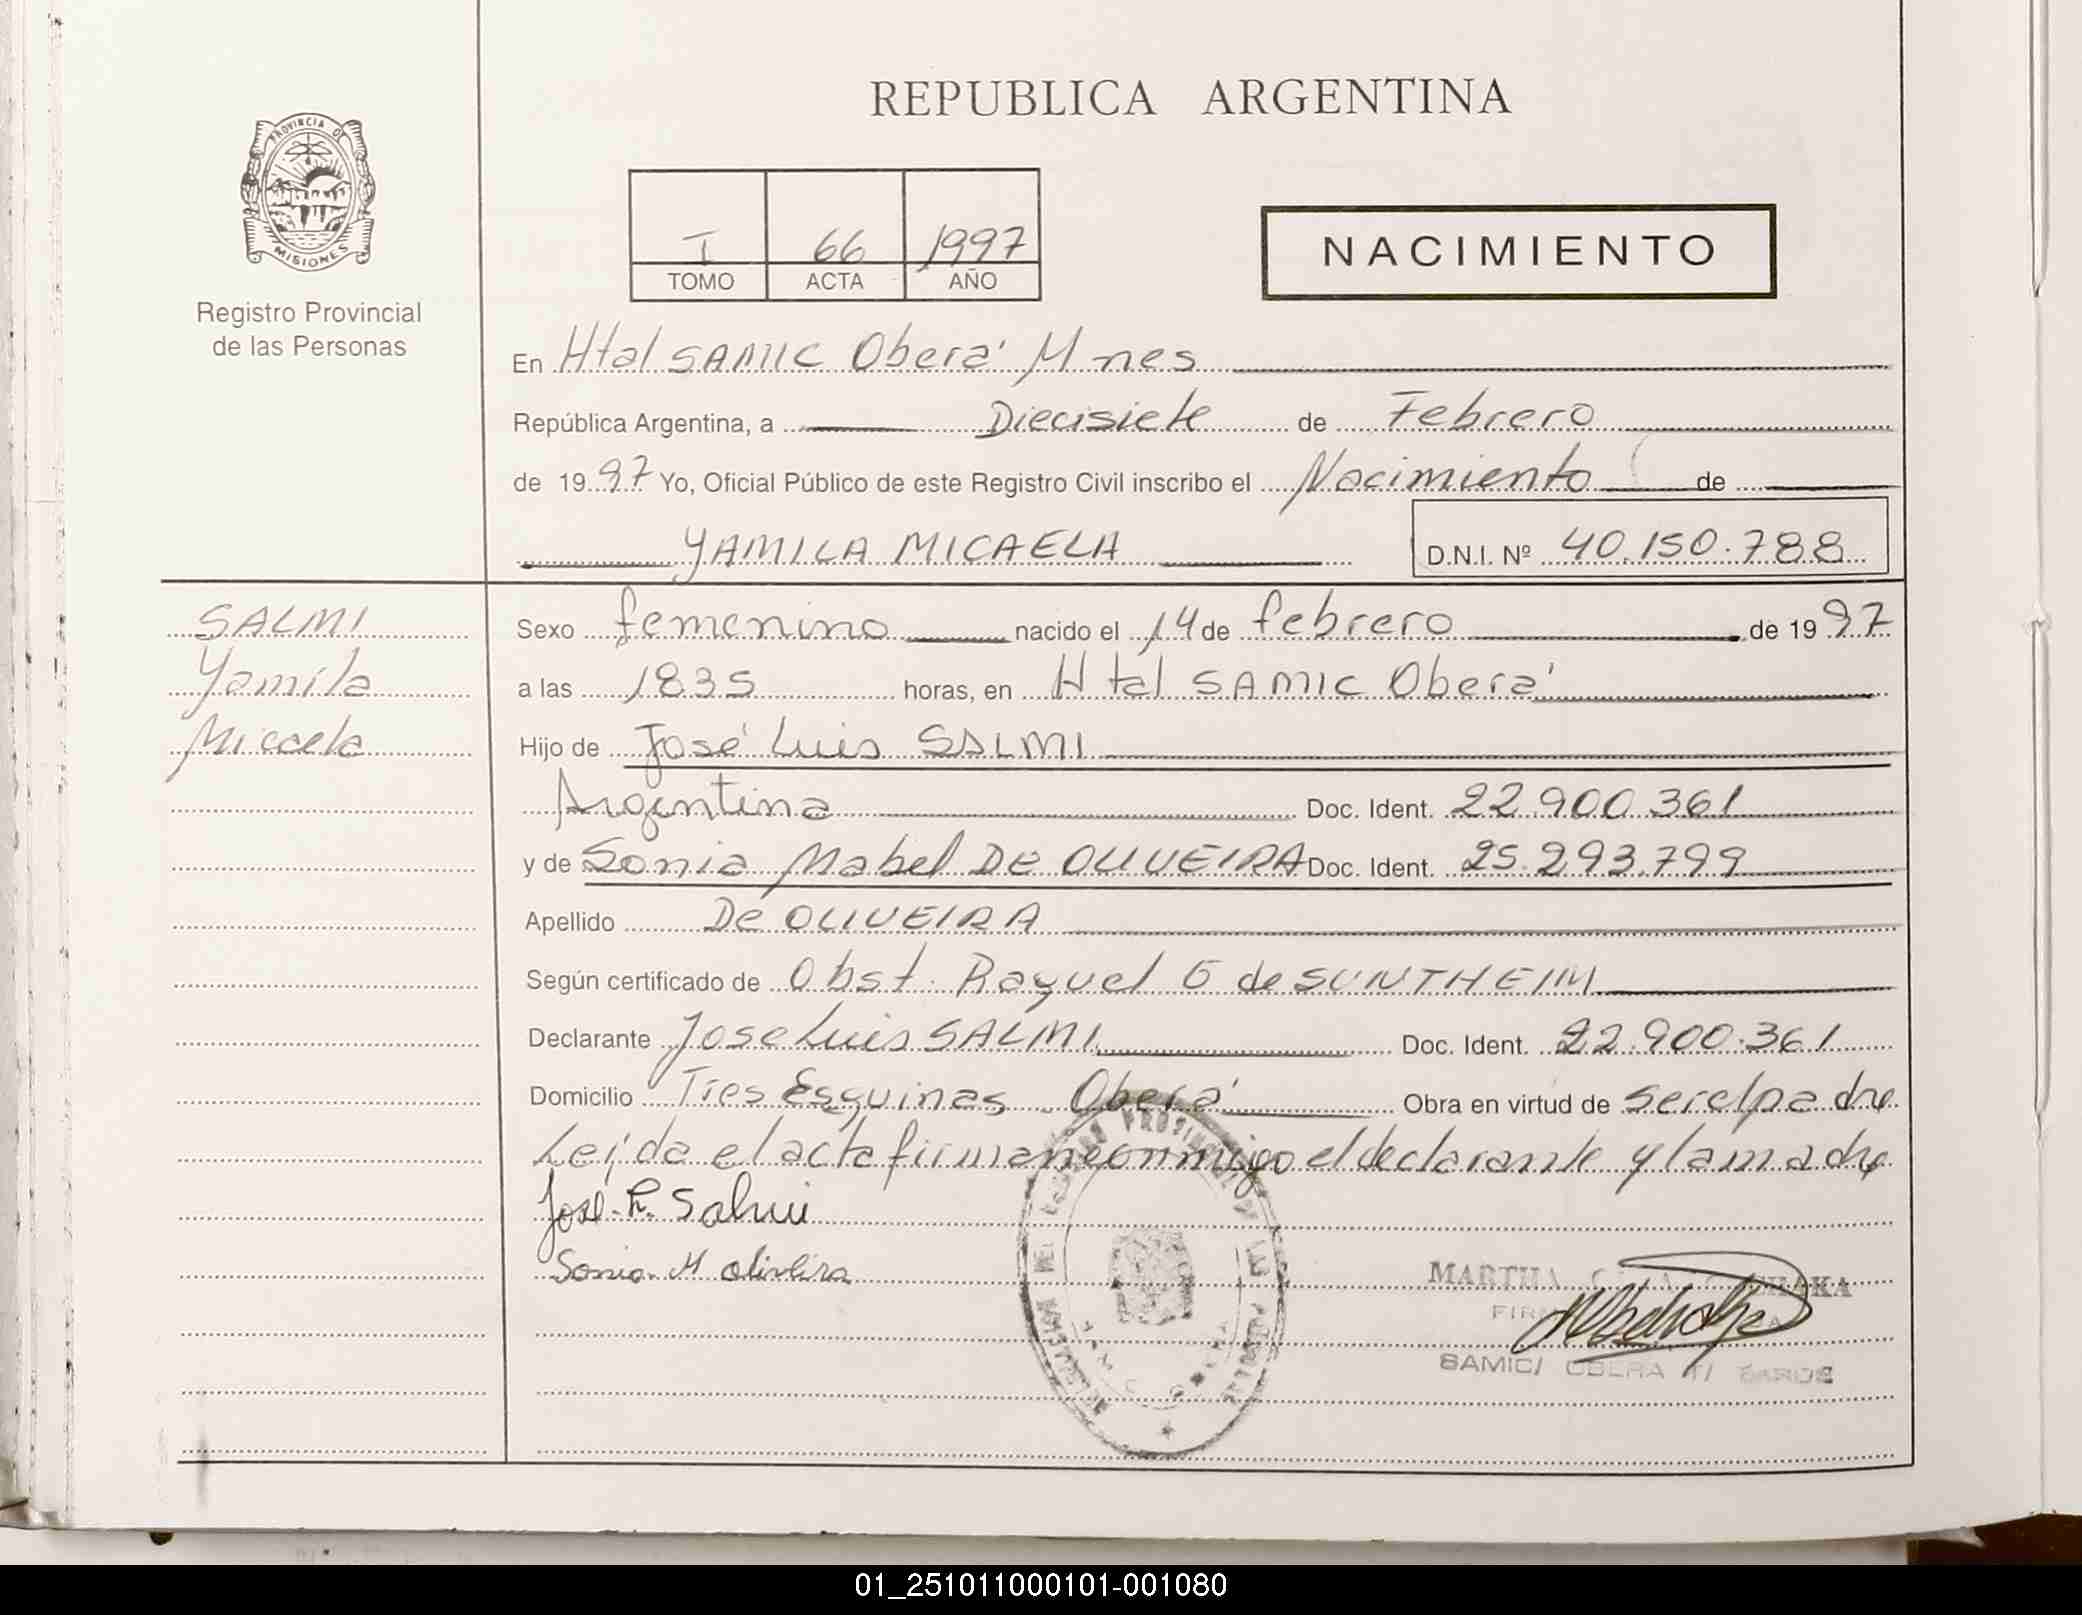 REPUBLICA ARGENTINA
PROVINCIA DE
MISIONES
Registro Provincial
de las Personas
I 66 1997
TOMO ACTA AÑO
NACIMIENTO
En Htal SAMIC Oberá Mnes
República Argentina, a Diecisiete de Febrero
de 1997 Yo, Oficial Público de este Registro Civil inscribo el Nacimiento de
YAMILA MICAELA D.N.I. Nº 40.150.788
SALMI
Yamila
Micaela
Sexo femenino nacido el 14 de febrero de 1997
a las 1835 horas, en Htal SAMIC Oberá
Hijo de José Luis SALMI
Argentina Doc. Ident. 22.900.361
y de Sonia Mabel DE OLIVEIRA Doc. Ident. 25.293.799
Apellido De OLIVEIRA
Según certificado de Obst. Raquel G de SUNTHEIM
Declarante Jose Luis SALMI Doc. Ident. 22.900.361
Domicilio Tres Esquinas Oberá Obra en virtud de ser el padre
Leída el acta firman conmigo el declarante y la madre
José L. Salmi
Sonia M oliveira
MARTHA
SAMIC/ OBERA T/
01_251011000101-001080